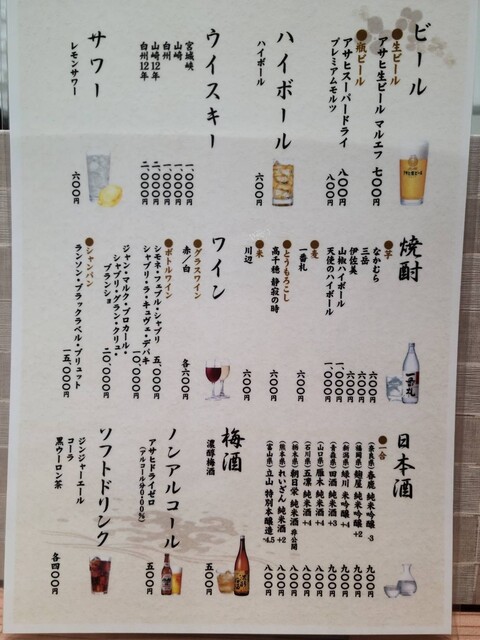 ビール
●生ビール
アサヒ生ビール マルエフ 七〇〇円
●瓶ビール
アサヒスーパードライ 八〇〇円
プレミアムモルツ 八〇〇円
ハイボール
ハイボール 六〇〇円
ウイスキー
宮城峡 一、〇〇〇円
山崎 一、〇〇〇円
白州 一、〇〇〇円
山崎12年 二、〇〇〇円
白州12年 二、〇〇〇円
サワー
レモンサワー 六〇〇円
焼酎
●芋
なかむら 六〇〇円
三岳 六〇〇円
伊佐美 六〇〇円
山椒ハイボール 一、〇〇〇円
天使のハイボール 一、〇〇〇円
●麦
一番札 六〇〇円
●とうもろこし
高千穂 静寂の時 六〇〇円
●米
川辺 六〇〇円
ワイン
●グラスワイン
赤／白 各六〇〇円
●ボトルワイン
シモネ・フェブル・シャブリ 五、〇〇〇円
シャブリ・ラ・キュヴェ・デパキ 一〇、〇〇〇円
ジャン・マルク・ブロカール・
シャブリ・グラン・クリュ・
ブランショ 二〇、〇〇〇円
●シャンパン
ランソン・ブラックラベル・ブリュット 一五、〇〇〇円
日本酒
●一合
(奈良県) 春鹿 純米吟醸 -3 九〇〇円
(福岡県) 麹屋 純米吟醸 +2 九〇〇円
(新潟県) 緑川 米吟醸 +4 九〇〇円
(青森県) 田酒 純米酒 +3 九〇〇円
(山口県) 雁木 純米酒 +4 八〇〇円
(石川県) 五凛 純米酒 +4 八〇〇円
(栃木県) 朝日栄 純米酒 非公開 八〇〇円
(熊本県) れいざん 純米酒 +2 八〇〇円
(富山県) 立山 特別本醸造 +4.5 八〇〇円
梅酒
濃醇梅酒 五〇〇円
ノンアルコール
アサヒドライゼロ
(アルコール分0.00%) 五〇〇円
ソフトドリンク
ジンジャーエール
コーラ
黒ウーロン茶
各四〇〇円
一番札